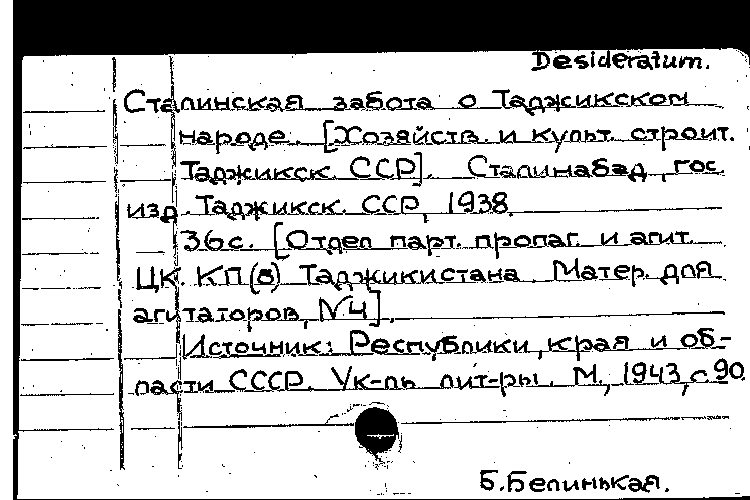 Desideratum.
Сталинская забота о Таджикском
народе. [Хозяйств. и культ. строит.
Таджикск. ССР]. Сталинабад, гос.
изд. Таджикск. ССР, 1938.
36с. [Отдел парт. пропаг. и агит.
ЦК. КП(б) Таджикистана. Матер. для
агитаторов, №4].
Источник: Республики, края и об-
ласти СССР. Ук-ль лит-ры. М., 1943, с.90.
Б.Белинькая.